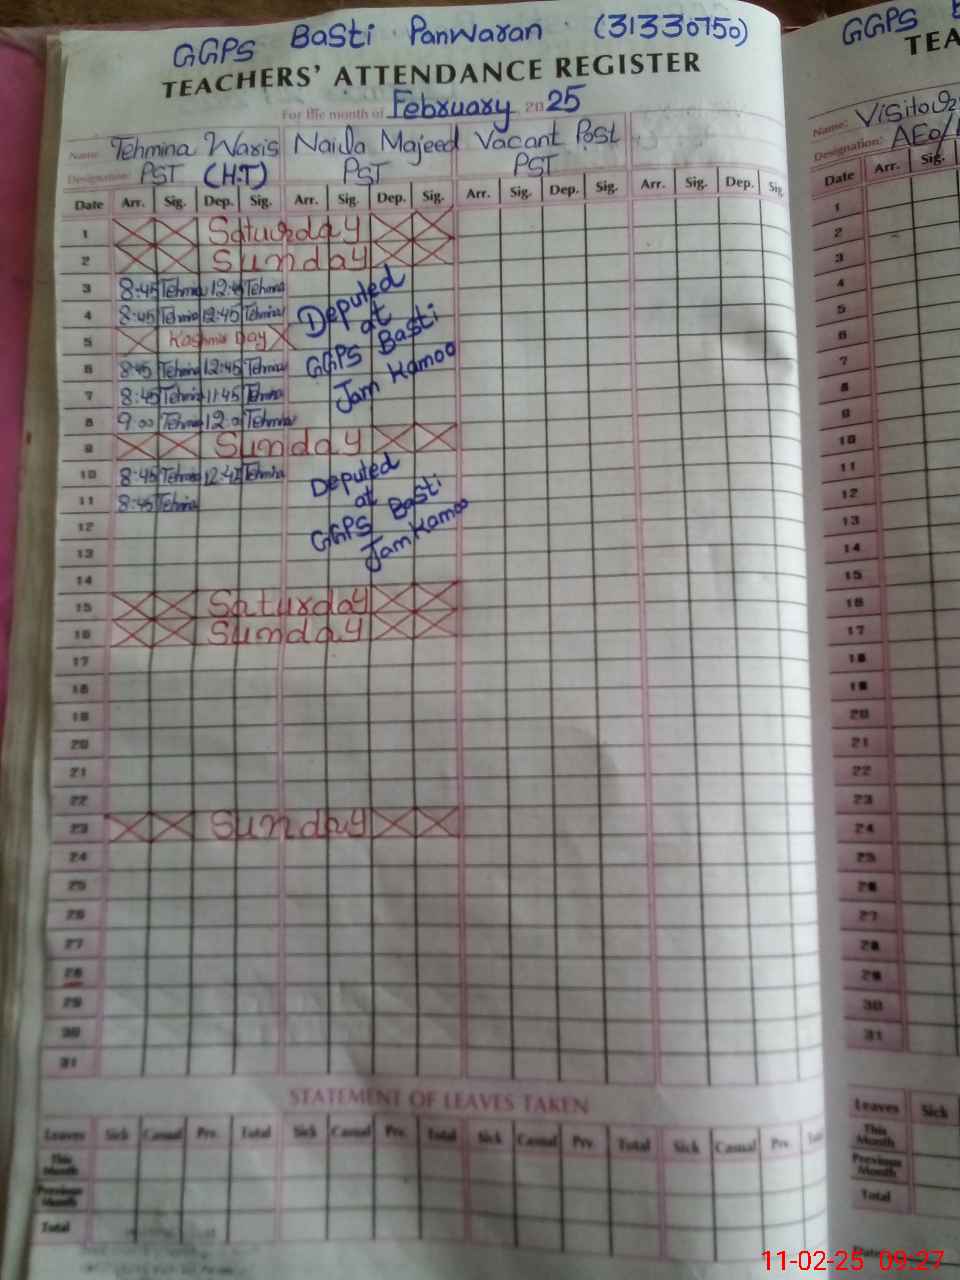 GGPS Basti Panwaran (31330750)
TEACHERS' ATTENDANCE REGISTER
For the month of February 2025
Name: Tehmina Waris Naida Majeed Vacant Post
Designation: PST (H.T) PST PST
Date Arr. Sig. Dep. Sig. Arr. Sig. Dep. Sig. Arr. Sig. Dep. Sig. Arr. Sig. Dep. Sig.
1 Saturday
2 Sunday
3 8:45 Tehmina 12:45 Tehmina
4 8:45 Tehmina 12:45 Tehmina
Deputed
at
GGPS Basti
Jam Kamoo
5 Kashmir Day
6 8:45 Tehmina 12:45 Tehmina
7 8:45 Tehmina 11:45 Tehmina
8 9:00 Tehmina 12:0 Tehmina
9 Sunday
10 8:45 Tehmina 12:45 Tehmina
11 8:45 Tehmina
Deputed
at
GGPS Basti
Jam Kamoo
12
13
14
15 Saturday
16 Sunday
17
18
19
20
21
22
23 Sunday
24
25
26
27
28
29
30
31
STATEMENT OF LEAVES TAKEN
Leaves Sick Casual Prv. Total Sick Casual Prv. Total Sick Casual Prv. Total Sick Casual Prv. Total
This Month
Previous Month
Total
GGPS
TEA
Name: Visitor
Designation: AEO/
Date Arr. Sig.
1
2
3
4
5
6
7
8
9
10
11
12
13
14
15
16
17
18
19
20
21
22
23
24
25
26
27
28
29
30
31
Leaves Sick
This Month
Previous Month
Total
Date
11-02-25 09:27